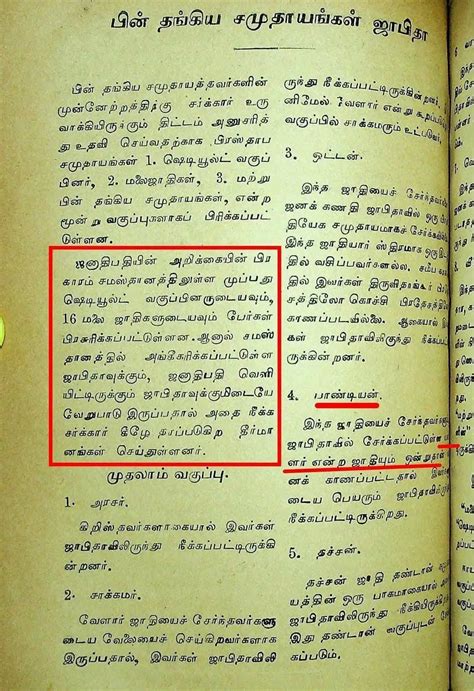 பின் தங்கிய சமுதாயங்கள் ஜாபிதா
பின் தங்கிய சமுதாயத்தவர்களின்
முன்னேற்றத்திற்கு சர்க்கார் உரு
வாக்கியிருக்கும் திட்டம் அனுசரித்
து உதவி செய்வதற்காக பிரஸ்தாப
சமுதாயங்கள் 1. ஷெடியூல்ட் வகுப்
பினர், 2. மலைஜாதிகள், 3. மற்று
பின் தங்கிய சமுதாயங்கள், என்ற
மூன்று வகுப்புகளாகப் பிரிக்கப்பட்
டுள்ளன.
ஜனாதிபதியின் அறிக்கையின் பிர
காரம் சமஸ்தானத்திலுள்ள முப்பது
ஷெடியூல்ட் வகுப்பினருடையவும்,
16 மலை ஜாதிகளுடையவும் பேர்கள்
பிரசுரிக்கப்பட்டுள்ளன. ஆனால் சமஸ்
தானத்தில் அங்கீகரிக்கப்பட்டுள்ள
ஜாபிதாவுக்கும், ஜனாதிபதி வெளி
யிட்டிருக்கும் ஜாபிதாவுக்குமிடையே
வேறுபாடு இருப்பதால் அதை நீக்க
சர்க்கார் கீழே தரப்படுகிற தீர்மா
னங்கள் செய்துள்ளனர்.
முதலாம் வகுப்பு.
1. அரசர்.
கிறிஸ்தவர்களாகையால் இவர்கள்
ஜாபிதாவிலிருந்து நீக்கப்பட்டிருக்கி
ன்றனர்.
2. சாக்கமர்.
வேளார் ஜாதியைச் சேர்ந்தவர்களு
டைய வேலையைச் செய்கிறவர்களாக
இருப்பதால், இவர்கள் ஜாபிதாவிலி
ருந்து நீக்கப்பட்டிருக்கின்றனர்.
னிமேல் வேளார் என்று கூறப்படு
வகுப்பில் சாக்கமரும் உட்படுவர்.
3. ஒட்டன்.
இந்த ஜாதியைச் சேர்ந்தவர்
ஜனக் கணதி ஜாபிதாவில் ஒரு
தியேக சமுதாயமாகச் சேர்க்க
இந்த ஜாதியார் ஸ்திரமாக ஒரு
தில் வசிப்பவர்களல்ல. சமீப
தில் இவர்கள் திருவிதாங்கூர்
சத்திலோ கொச்சி பிரதேச
காணப்படவில்லை. ஆகையால்
கள் ஜாபிதாவிலிருந்து நீக்க
ருக்கின்றனர்.
4. பாண்டியன்.
இந்த ஜாதியைச் சேர்ந்தவர்
ஜாபிதாவில் சேர்க்கப்பட்டுள்ள
ளர் என்ற ஜாதியும் ஒன்றுதான்
எனக் காணப்பட்டதால் இவர்
டைய பெயரும் ஜாபிதாவிலி
நீக்கப்பட்டிருக்கிறது.
5. தச்சன்.
தச்சன் ஜாதி தண்டான்
யத்தின் ஒரு பாகமாகையால்
ஜாபிதாவிலிருந்து நீக்கியிரு
இது தண்டான் வகுப்புடன்
கப்படும்.